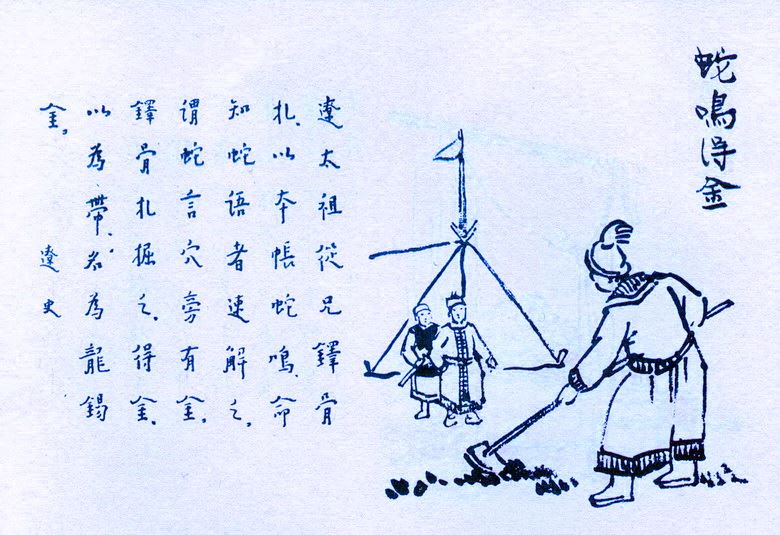 蛇鳴得金
遼太祖從兄鐸骨
扎、以本帳蛇鳴、命
知蛇語者速解之、
谓蛇言穴旁有金、
鐸骨扎掘之、得金、
以為帶、名為龍錫
金。
遼史